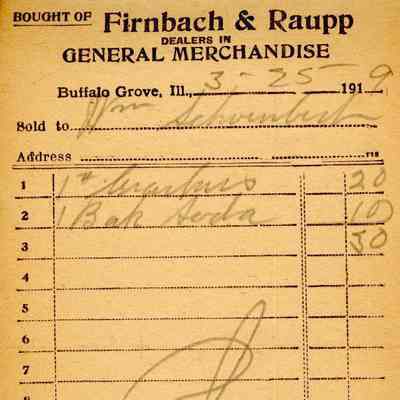 BOUGHT OF Firnbach & Raupp
DEALERS IN
GENERAL MERCHANDISE
Buffalo Grove, Ill., 3-25 1919
Sold to Wm
Address
1 1# Crackers 20
2 1 Bak Soda 10
3 30
4
5
6
7
8